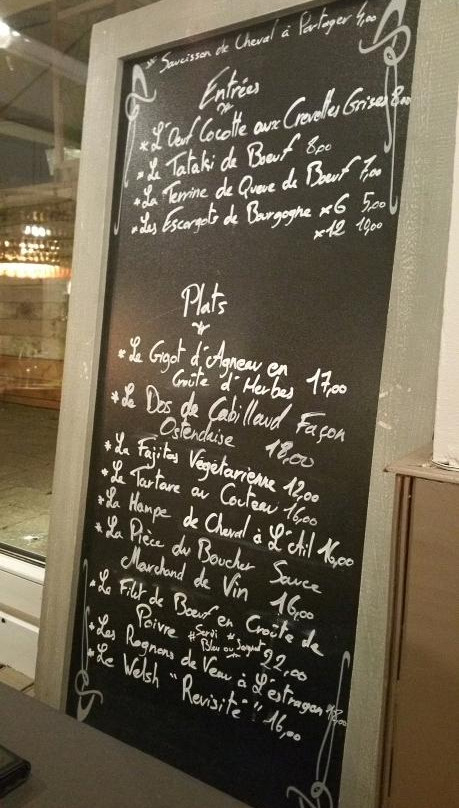 * Saucisson de Cheval à Partager 4,00
Entrées
*
* L'Oeuf Cocotte aux Crevettes Grises 8,00
* Le Tataki de Boeuf 8,00
* La Terrine de Queue de Boeuf 7,00
* Les Escargots de Bourgogne x6 5,00
x12 10,00
Plats
*
* Le Gigot d'Agneau en
Croûte d'Herbes 17,00
* Le Dos de Cabillaud Façon
Ostendaise 18,00
* La Fajitas Végétarienne 12,00
* Le Tartare au Couteau 16,00
* La Hampe de Cheval à L'Ail 16,00
* La Pièce du Boucher Sauce
Marchand de Vin 16,00
* Le Filet de Boeuf en Croûte de
Poivre * Servi * Bleu ou Saignant 22,00
* Les Rognons de Veau à L'estragon 18,00
* Le Welsh "Revisité" 16,00